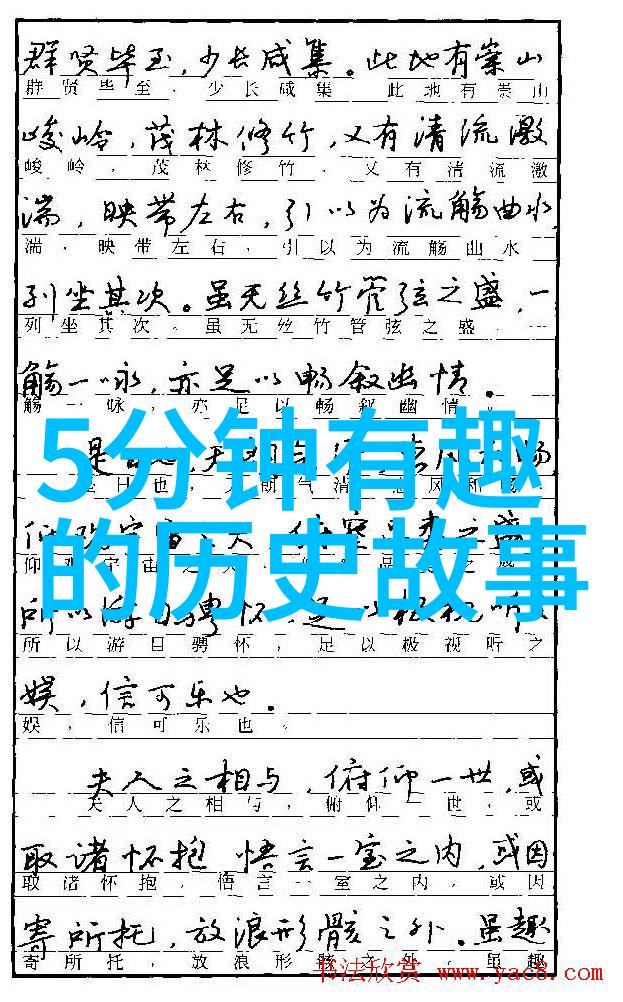 群贤毕至，少长咸集。此地有崇山
群贤毕至，少长咸集。此地有崇山
峻岭，茂林修竹，又有清流激
峻岭，茂林修竹，又有清流激
湍，映带左右，引以为流觞曲水，
湍，映带左右，引以为流觞曲水，
列坐其次。虽无丝竹管弦之盛，一
列坐其次。虽无丝竹管弦之盛，一
觞一咏，亦足以畅叙幽情。
觞一咏，亦足以畅叙幽情。
5分钟有趣
的历史故事
是
日也，气清，风和
仰之
仰宇宙之
所以游目骋怀，足以极视听
所以游目骋怀，足以极视听之
娱，信可乐也。
娱，信可乐也。
夫人之相与，俯仰一世，或
夫人之相与，俯仰一世，或
取诸怀抱，悟言一室之内，或因
取诸怀抱，悟言一室之内，或因
寄所托，放浪形骸之外。虽趣
寄所托，放浪形骸之外。虽趣
书法欣赏 www.yac8.com